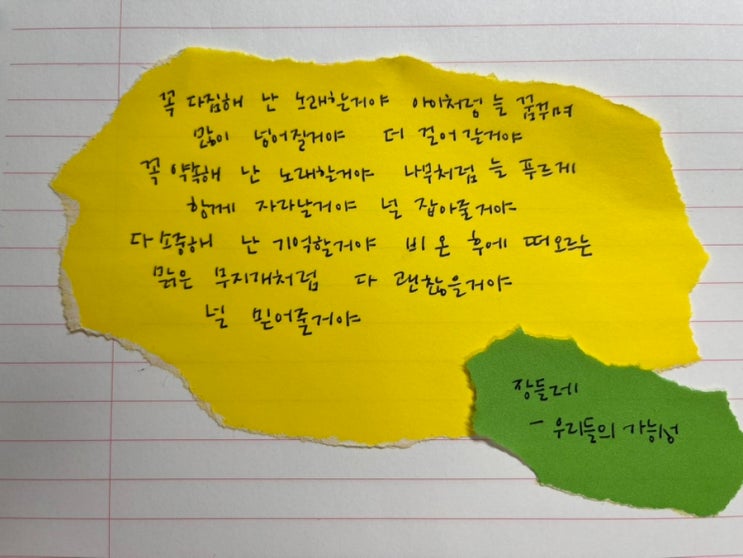 꼭 다짐해 난 노래할거야 아이처럼 늘 꿈꾸며
많이 넘어질거야 더 걸어갈거야
꼭 약속해 난 노래할거야 나무처럼 늘 푸르게
함께 자라날거야 널 잡아줄거야
다 소중해 난 기억할거야 비 온 후에 떠오르는
맑은 무지개처럼 다 괜찮을거야
널 믿어줄거야
장들레
- 우리들의 가능성